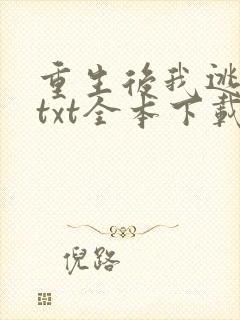 重生後我逃
txt全本下載
倪路